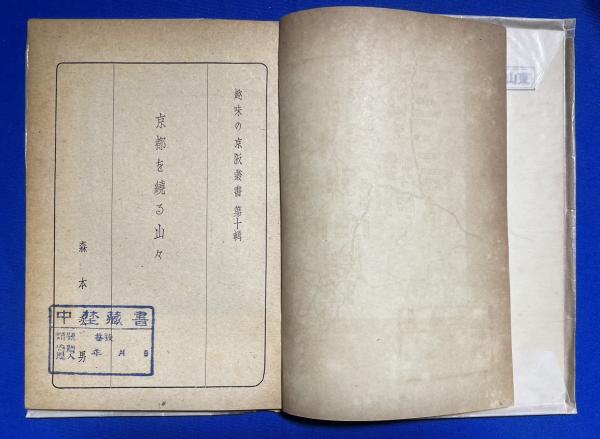 趣味の京阪叢書 第十輯
京都を繞る山々
森本
男
中埜蔵書
番號
年 月 日
購入
山東